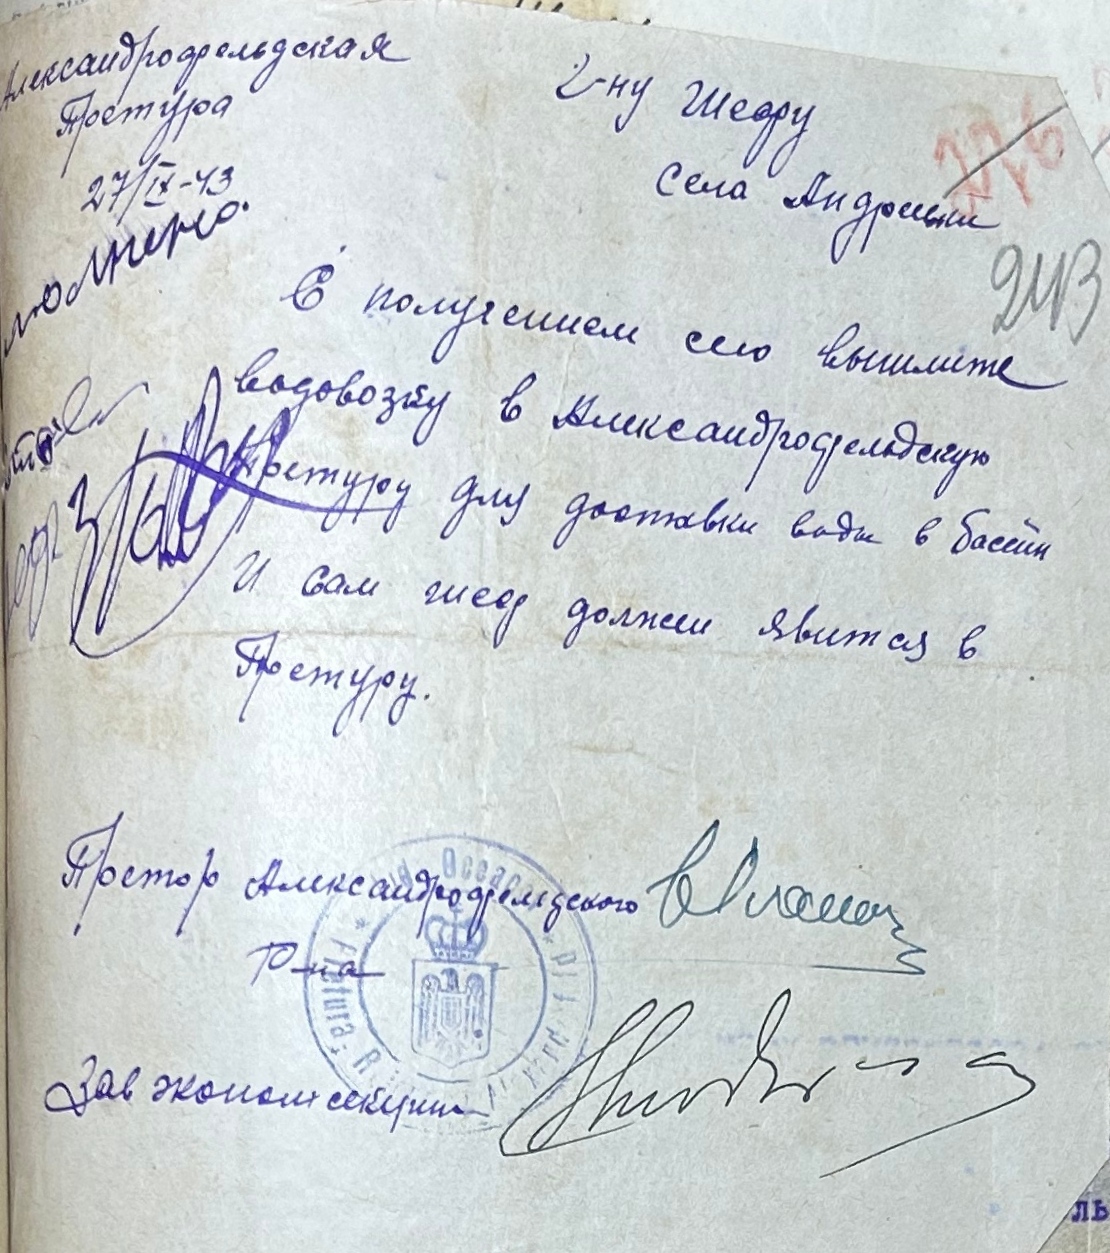 Александрофельдская
Претура
27/IX-43
2-ну Шефу
Села Андреевки
243
С получением сего вышлите
водовозку в Александрофельдскую
Претуру для доставки воды в бассейн
И сам шеф должен явится в
Претуру.
Претор Александрофельдского
Р-на
Зав эконом секции
Jud. Oceacov * Pretura
ль